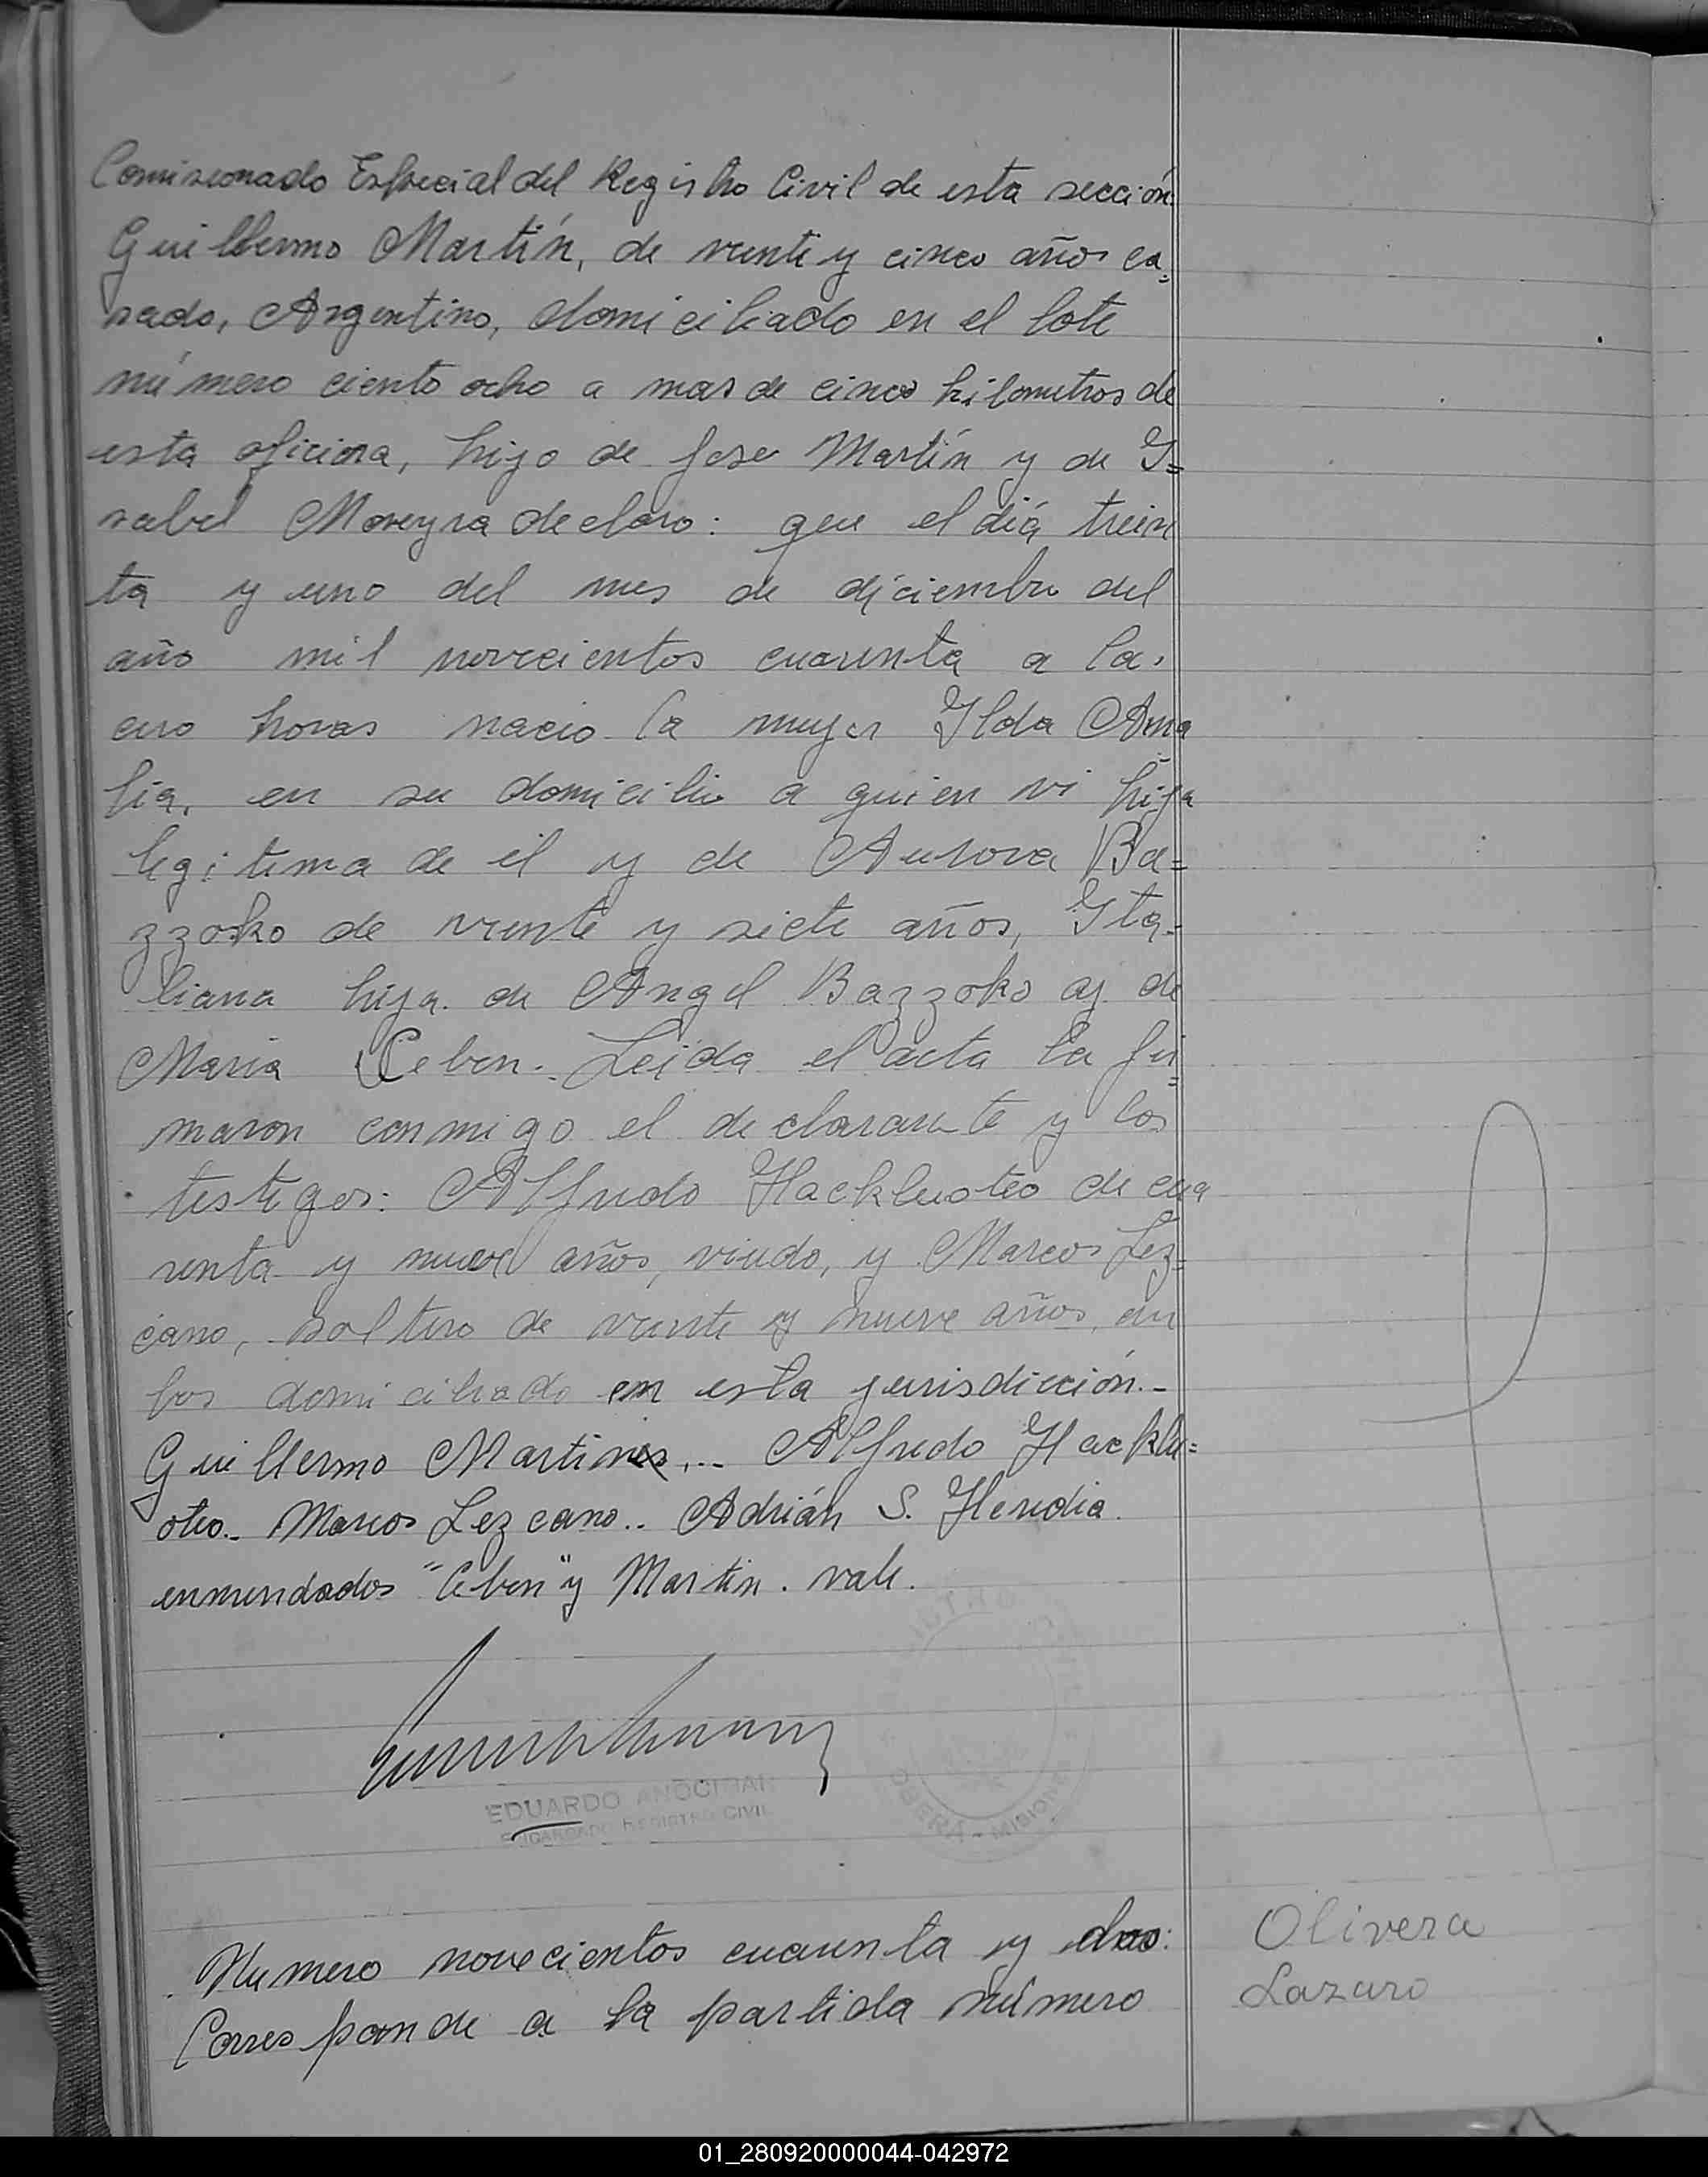 Comisionado Especial del Registro Civil de esta sección
Guillermo Martín, de veinte y cinco años ca=
sado, Argentino, domiciliado en el lote
número ciento ocho a mas de cinco kilometros de
esta oficina, hijo de Jose Martín y de I=
sabel Moreyra declaro: que el diá trein
ta y uno del mes de diciembre del
año mil novecientos cuarenta a las
cero horas nacio la mujer Ilda Ama
lia, en su domicilio a quien vi hija
legitima de él y de Aurora Ba=
zzoko de veinte y siete años, Ita-
liana hija de Angel Bazzoko y de
Maria Ceben. Leida el acta la fir=
maron conmigo el declarante y los
testigos: Alfredo Hackluoteo de cua
renta y nueve años, viudo, y Marcos Lez=
cano, soltero de veinte y nueve años, am
bos domiciliado en esta jurisdicción.-
Guillermo Martin... Alfredo Hacklu=
oteo.- Marcos Lezcano.. Adrián S. Heredia.
enmendados "Ceben" y Martin. vale.
EDUARDO ANOCIBAR
ENCARGADO REGISTRO CIVIL
OBERA - MISIONES
Numero novecientos cuarenta y dos:
Corresponde a la partida número
Olivera
Lazaro
01_280920000044-042972